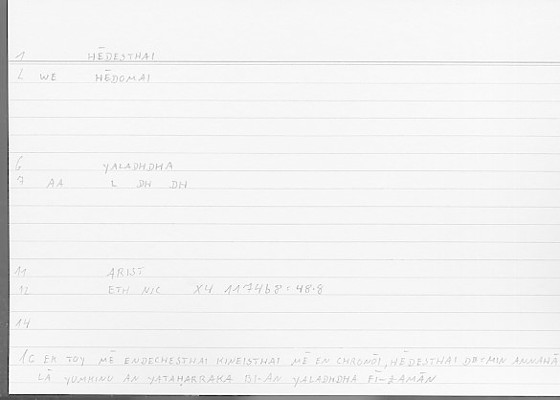 1 HĒDESTHAI
2 WE HĒDOMAI
6 YALADHDHA
7 AA L DH DH
11 ARIST
12 ETH NIC X4 1174b8 = 48.8
14
1C EK TOY MĒ ENDECHESTHAI KINEISTHAI MĒ EN CHRONŌI, HĒDESTHAI DE = MIN ANNAHŪ
LĀ YUMKINU AN YATAḤARRAKA BI-AN YALADHDHA FĪ-ZAMĀN